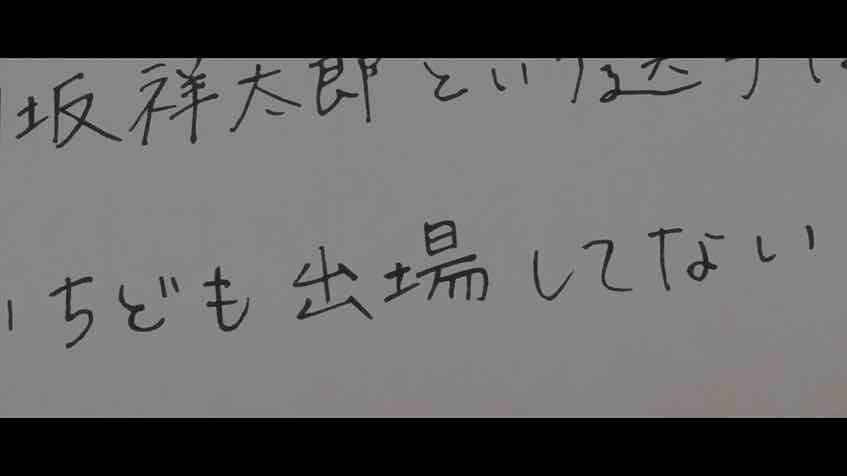 坂祥太郎という選手は
いちども出場してない